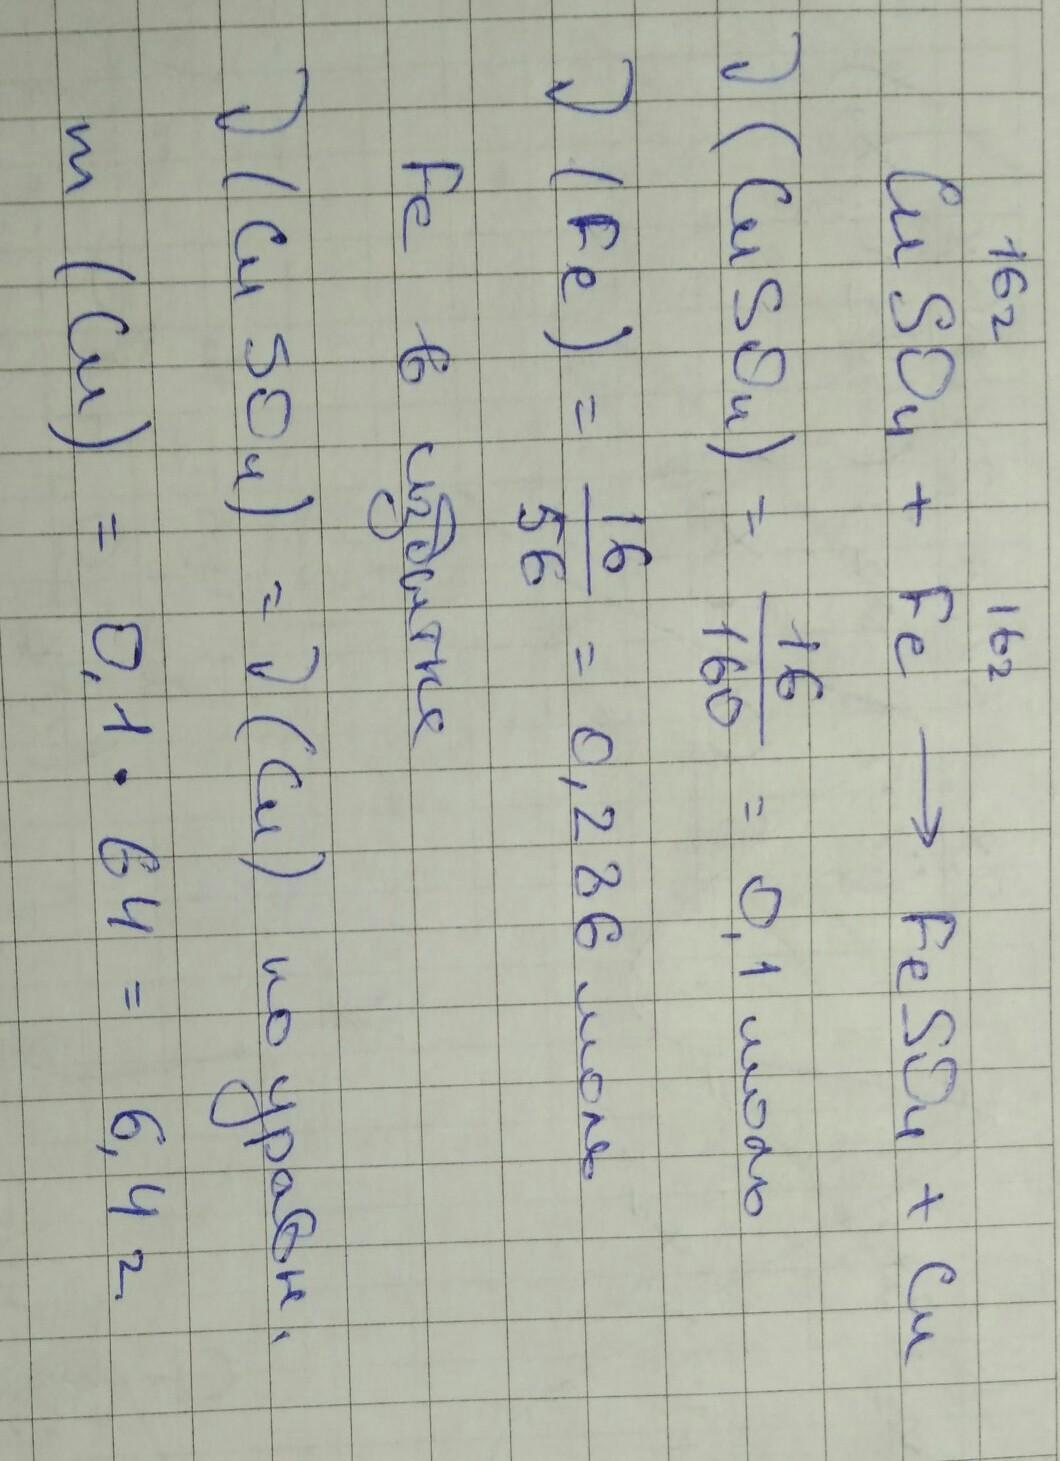 16г 16г
CuSO4 + Fe → FeSO4 + Cu
ν(CuSO4) = 16/160 = 0,1 моль
ν(Fe) = 16/56 = 0,286 моль
Fe в избытке
ν(CuSO4) = ν(Cu) по уравн.
m(Cu) = 0,1 · 64 = 6,4г